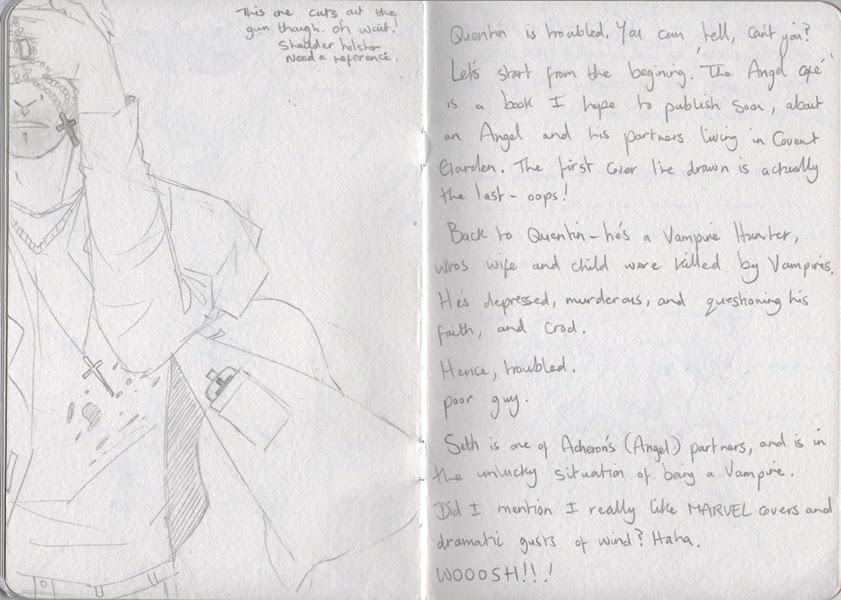 This one cuts out the
gun though. oh wait!
Shoulder holster
Need a reference.
Quentin is troubled. You can tell, can't you?
Let's start from the begining. 'The Angel Cafe'
is a book I hope to publish soon, about
an Angel and his partners living in Covent
Garden. The first cover I've drawn is actually
the last - oops!
Back to Quentin - he's a Vampire Hunter,
who's wife and child were killed by Vampires.
He's depressed, murderous, and questioning his
faith, and God.
Hence, troubled.
poor guy.
Seth is one of Acheron's (Angel) partners, and is in
the unlucky situation of being a Vampire.
Did I mention I really like MARVEL covers and
dramatic gusts of wind? Haha.
WOOOSH!!!